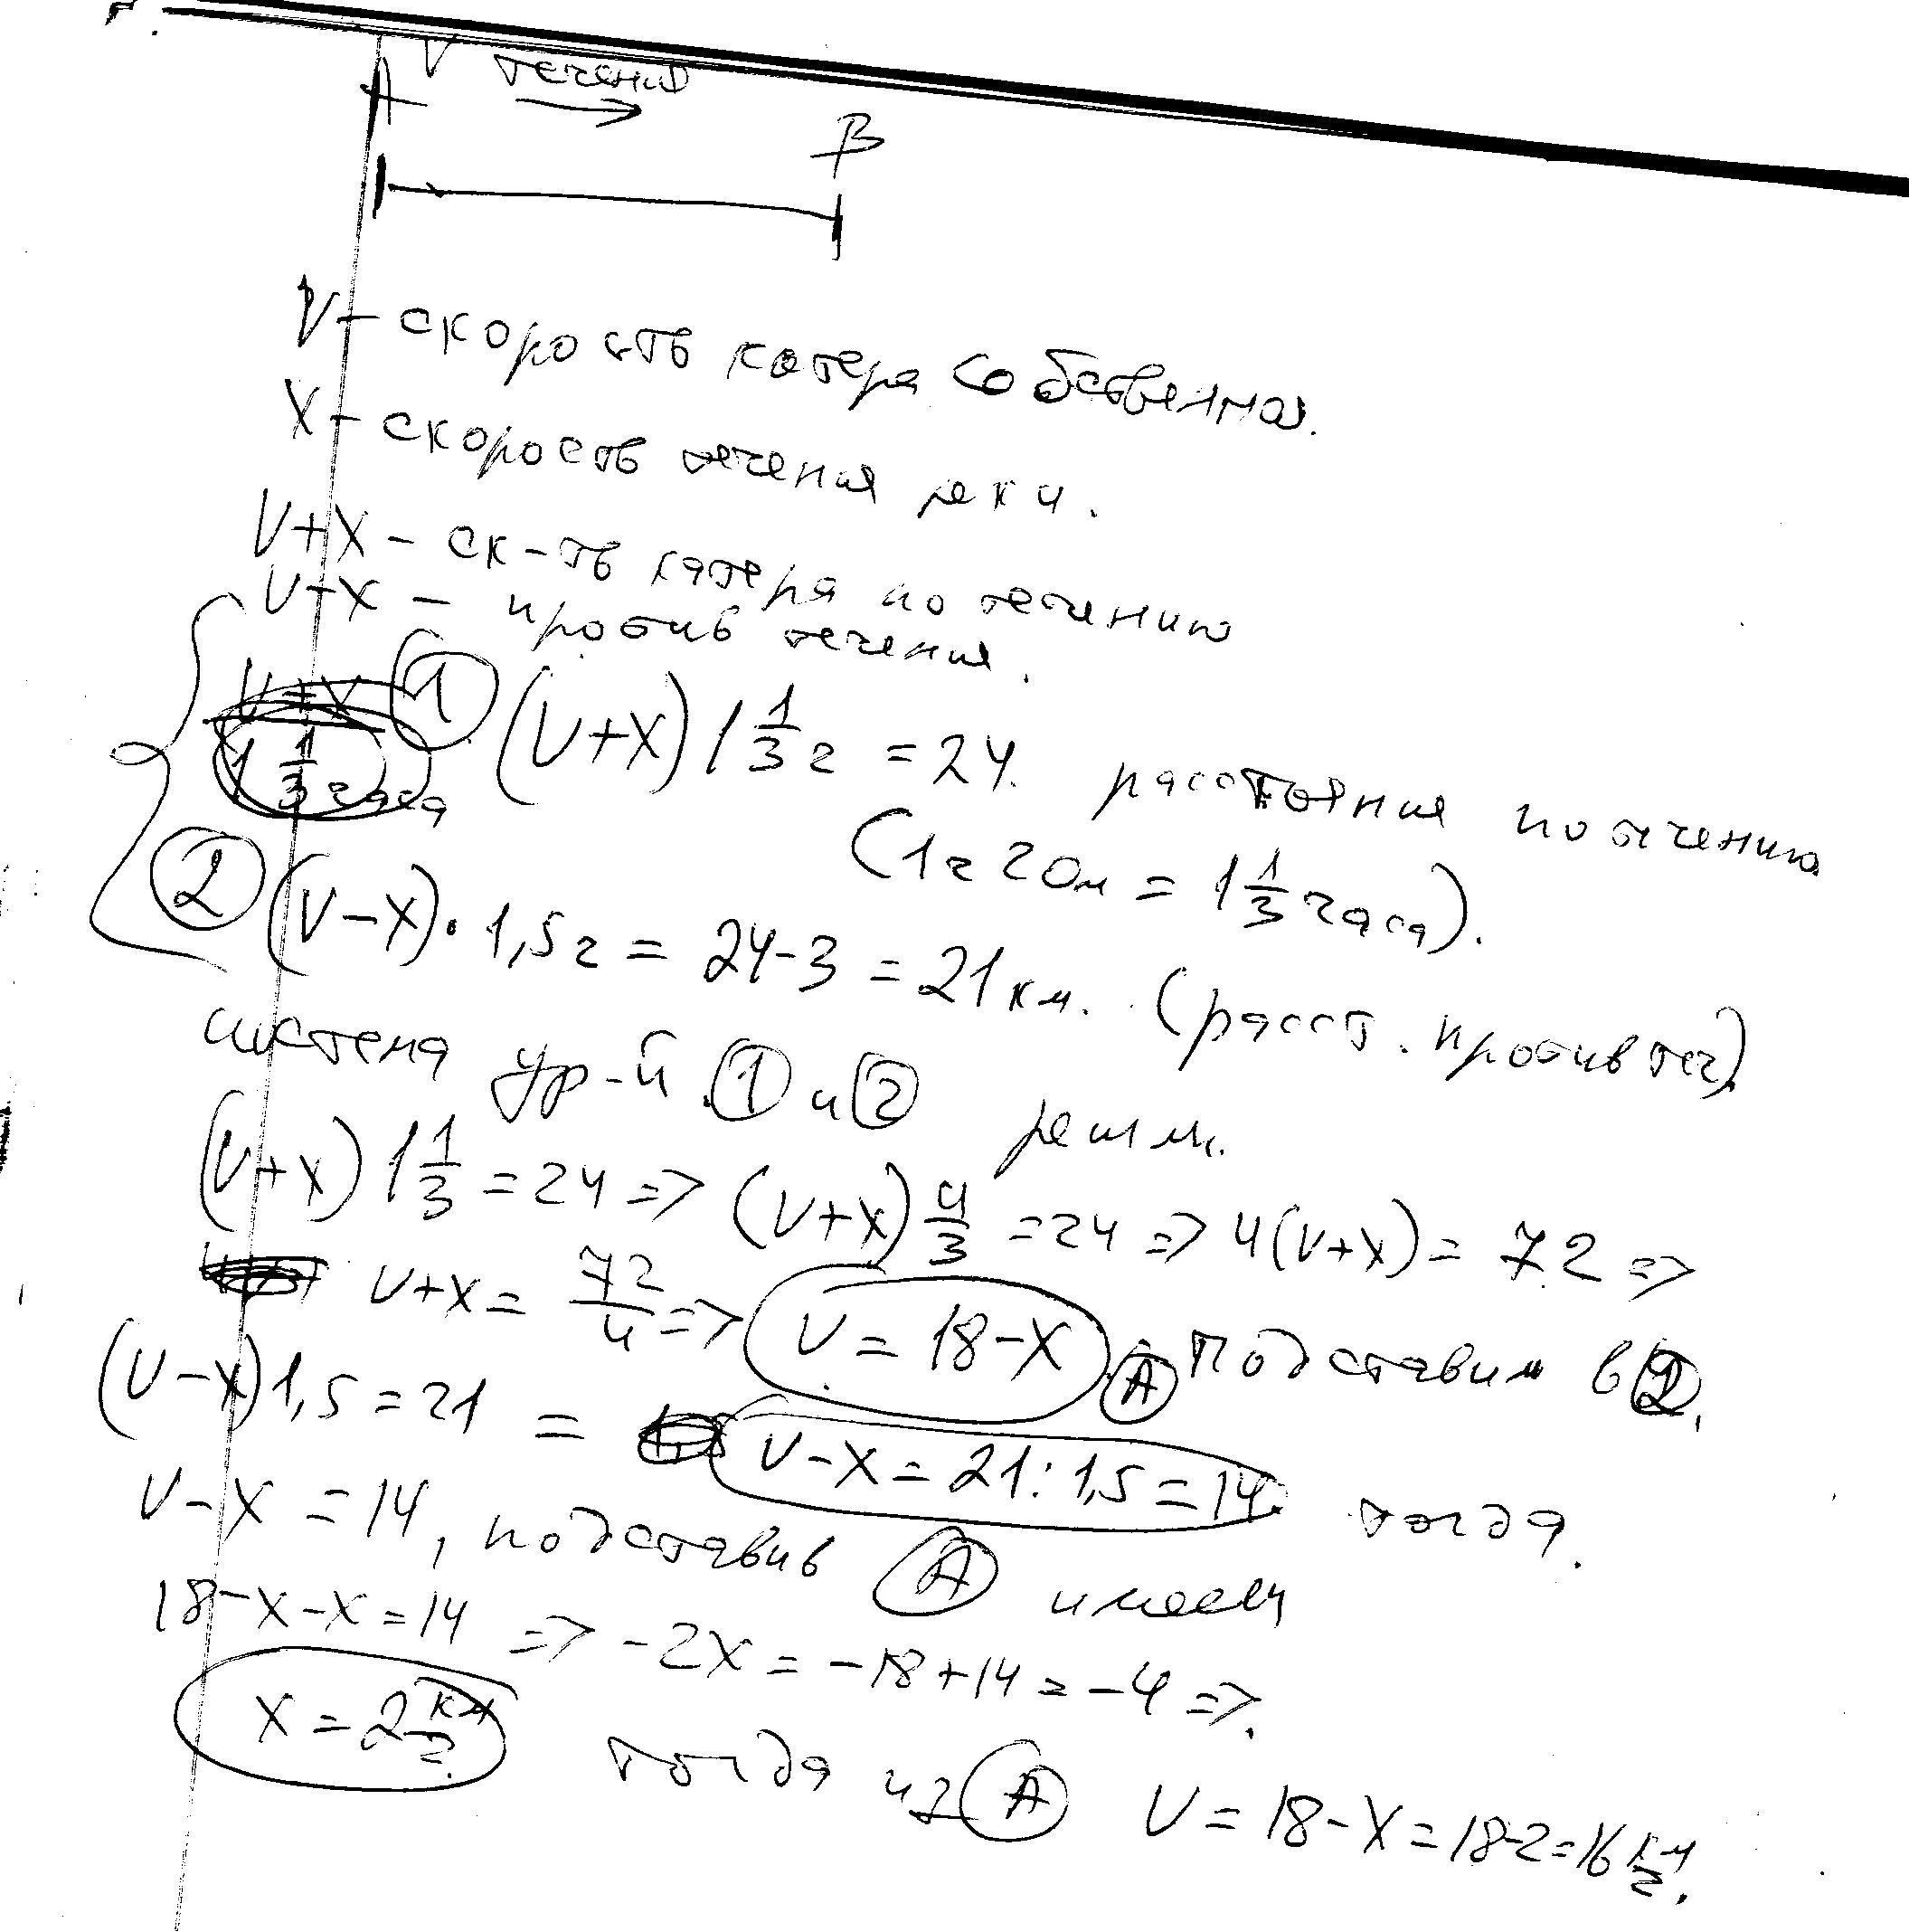 V течения
A
B
V – скорость катера собственная.
X – скорость течения реки.
V+X – ск-ть катера по течению
V–X – против течения.
① (V+X) 1 1/3 ч = 24. расстояния по течению
1 1/3 часа
(1ч 20м = 1 1/3 часа).
② (V–X)·1,5ч = 24-3 = 21 км. (расст. против теч).
система ур-й ① и ② решим.
(V+X) 1 1/3 = 24 => (V+X) 4/3 = 24 => 4(V+X) = 72 =>
V+X = 72/4 => V = 18-X Ⓐ подставим в ②.
(V–X)1,5 = 21 = V–X = 21:1,5 = 14. тогда.
V–X = 14, подставив Ⓐ имеем
18-X-X=14 => -2X = -18+14 = -4 =>.
X = 2 км/ч. тогда из Ⓐ V = 18-X = 18-2 = 16 км/ч.